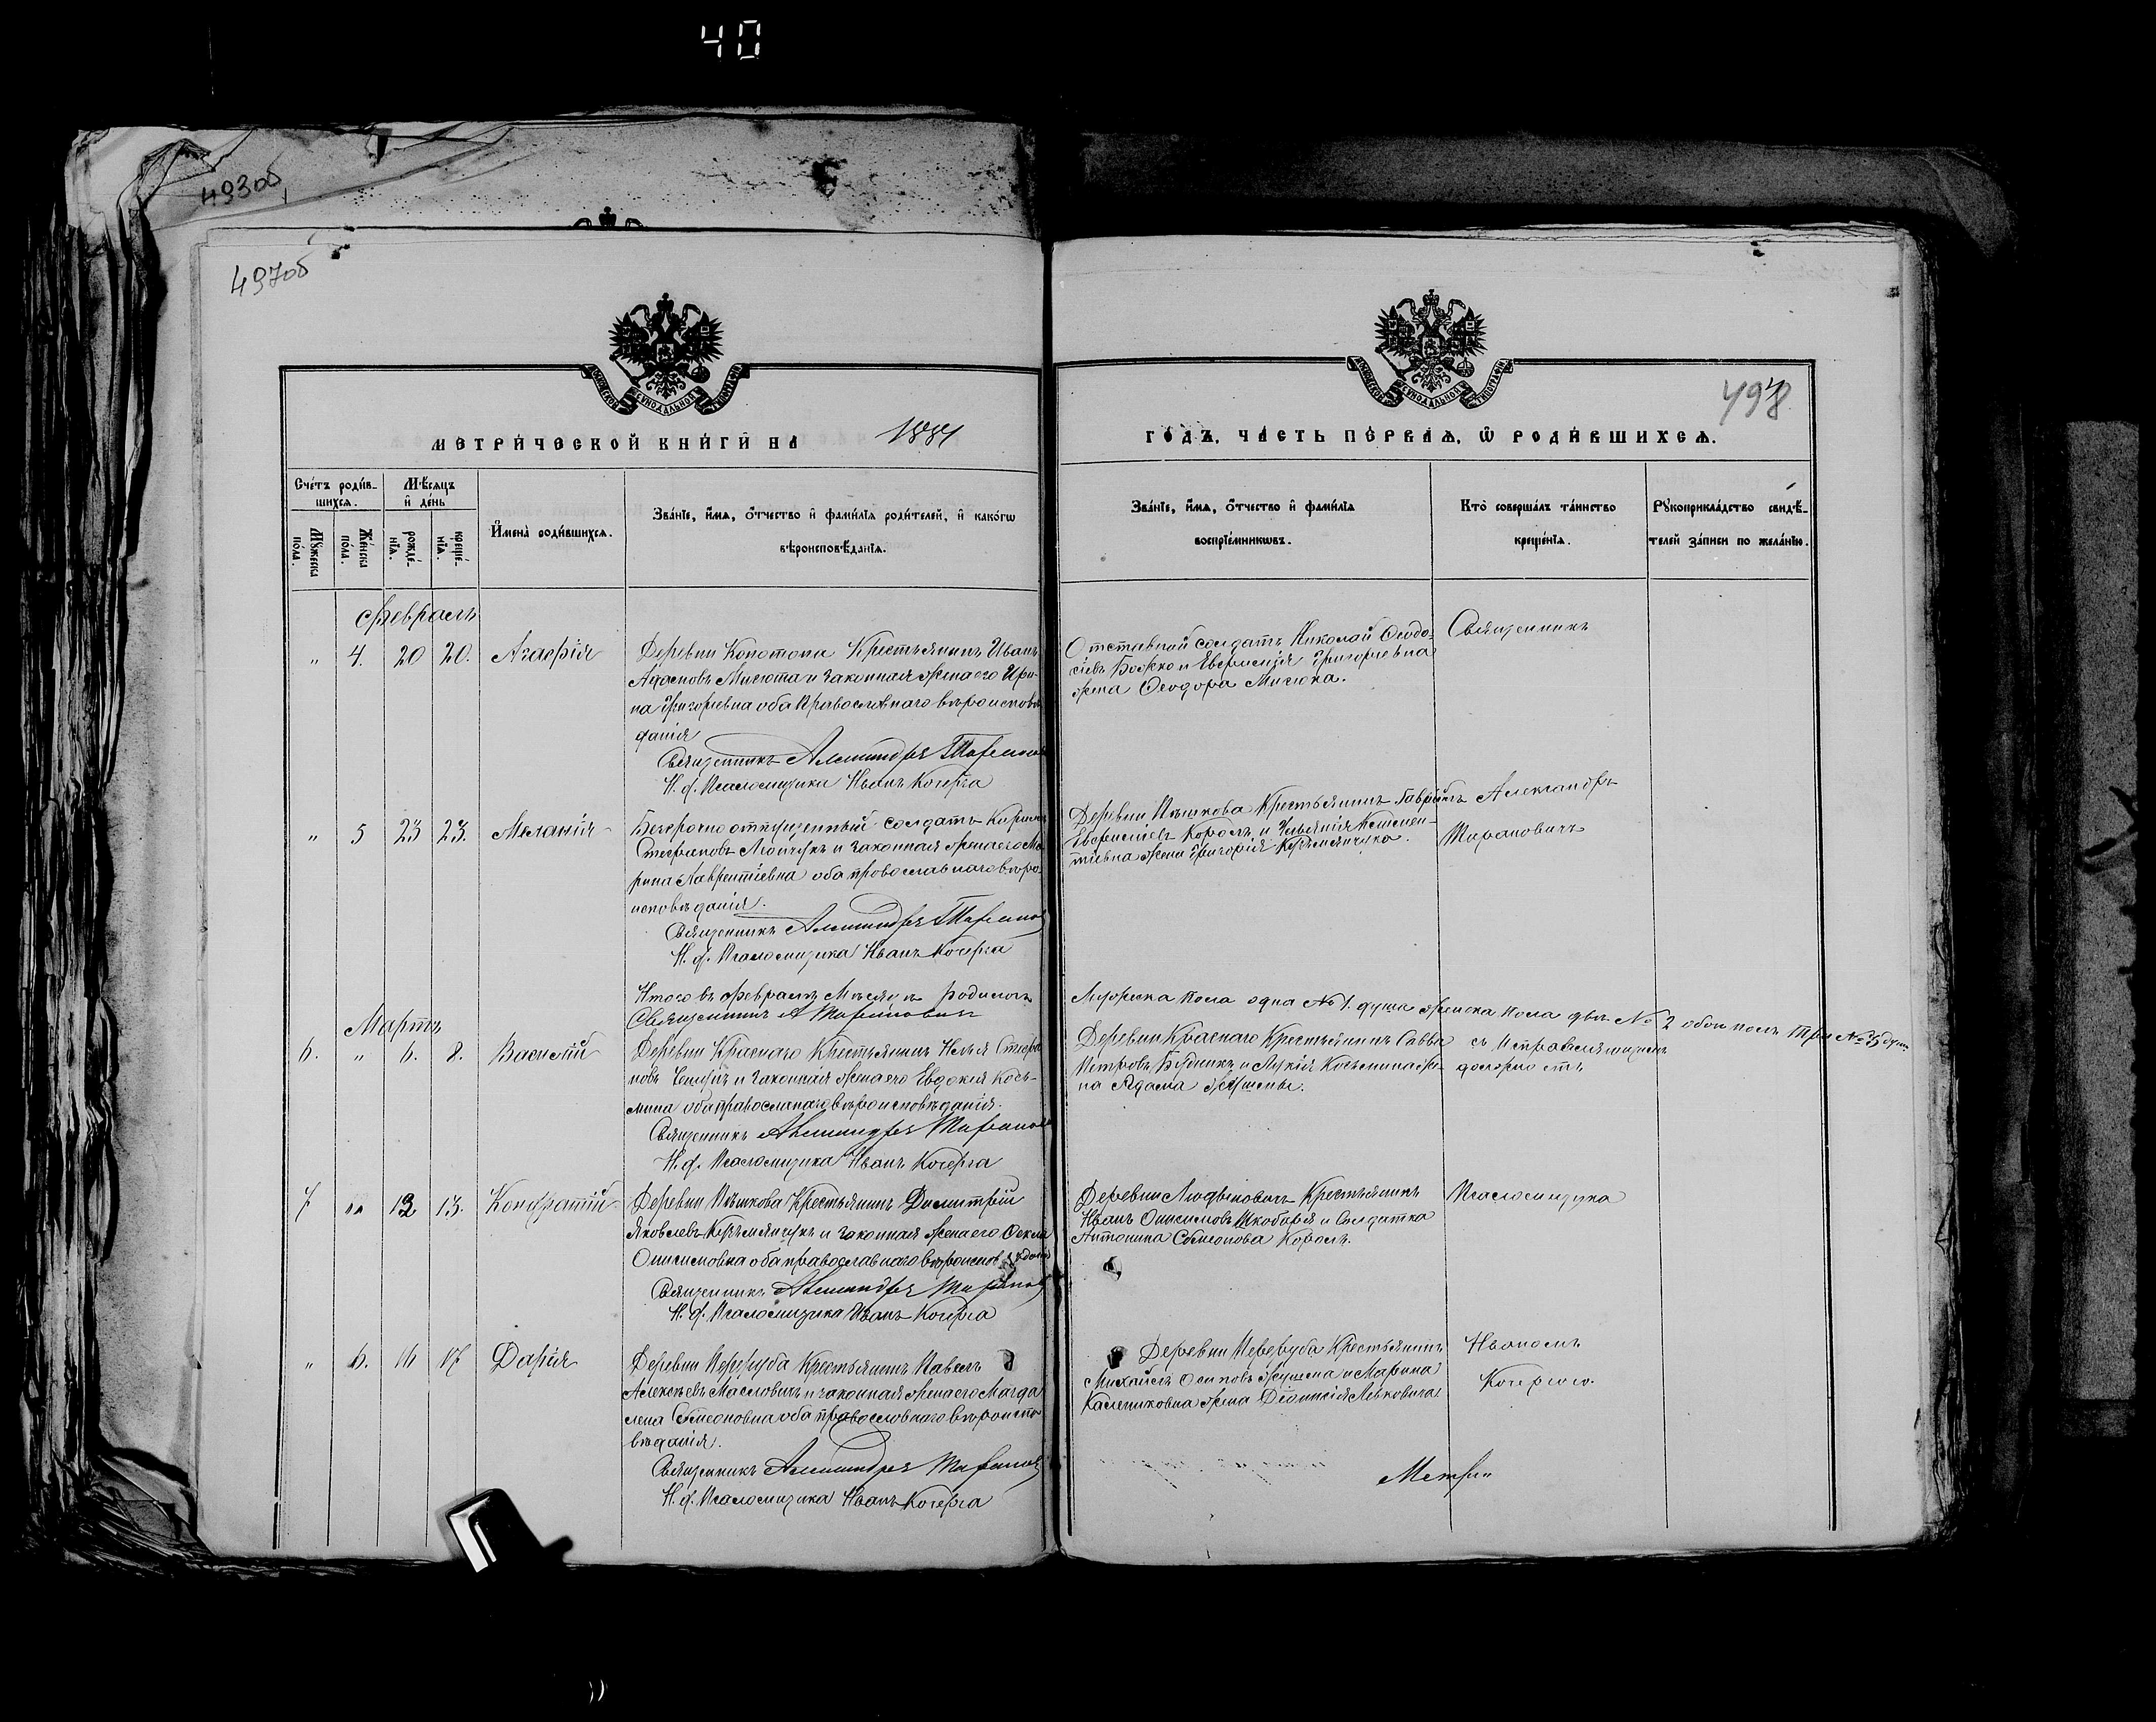 40
493об
497об
498
МЕТРИ́ЧЕСКОЙ КНИ́ГИ НА 1884
ГО́ДЪ, ЧА́СТЬ ПЕ́РВАѦ, Ѡ РОДИ́ВШИХСѦ.
Сче́тъ роди́в-
шихсѧ.
Мꙋ́жеска по́ла.
Же́нска по́ла.
Мѣ́сѧцъ
и҆ де́нь
рожде́-
нїѧ.
креще́-
нїѧ.
И҆мена̀ роди́вшихсѧ.
Зва́нїе, и҆́мѧ, ѻ҆́тчество и҆ фами́лїѧ роди́телей, и҆ како́гѡ
вѣроисповѣ́данїѧ.
Зва́нїе, и҆́мѧ, ѻ҆́тчество и҆ фами́лїѧ
воспрїе́мникѡвъ.
Кто̀ соверша́лъ та́инство
креще́нїѧ.
Рꙋкоприкла́дство свидѣ́-
телей за́писи по жела́нїю.
Февраль
" 4. 20 20. Агафія
Деревни Конотопа Крестьянинъ Иванъ
Адамовъ Мисюта и законная жена его Ири-
на Григорьевна оба Православнаго вѣроисповѣ
данія
Священникъ Александръ Таранович
И. д. Псаломщика Иванъ Кочерга
Отставной солдатъ Николай Ѳеодо-
сіевъ Божко и Евфимія Григорьевна
жена Ѳеодора Мисюка.
Священникъ
" 5 23 23. Меланія
Безсрочно отпущенный солдатъ Кирилъ
Стефановъ и законная жена его Ма
рина Лаврентіевна оба православнаго вѣро
исповѣданія.
Священникъ Александръ Таранович
И. д. Псаломщика Иванъ Кочерга
Деревни Пѣшкова Крестьянинъ Гавріилъ
Евфиміевъ Король и Ульянія Клемен-
тіевна жена Григорія Кремянчука.
Александръ
Тарановичъ
Итого въ Февралѣ Мѣсяцѣ родилось
Мужеска пола одна № 1. душа женска пола двѣ № 2 обои полъ три № 3 душ.
Священникъ А Тарановичъ
Мартъ
6. " 6. 8. Василій
Деревни Краснаго Крестьянинъ Илья Стефа
новъ и законная жена его Евдокія Козь-
мина оба православнаго вѣроисповѣданія.
Священникъ Александръ Таранович
И. д. Псаломщика Иванъ Кочерга
Деревни Краснаго Крестьянинъ Савва
Петровъ Бѣдникъ и Лукія Козьмина же-
на Адама
съ Исправляющимъ
должность
7 " 12 13. Кондратій
Деревни Пѣшкова Крестьянинъ Димитрій
Яковлевъ Кремянчукъ и законная жена его Ѳекла
Онисимовна оба православнаго вѣроисповѣданія
Священникъ Александръ Таранов
И. д. Псаломщика Иванъ Кочерга
Деревни Людвиновичъ Крестьянинъ
Иванъ Онисимовъ Шкобаря и Солдатка
Антонина Сѵмеонова Король.
Псаломщика
" 6. 16 17 Дарія
Деревни Переруба Крестьянинъ Павелъ
Алексѣевъ Масловичъ и законная жена его Магда
лена Сѵмеоновна оба православнаго вѣроиспо
вѣданія.
Священникъ Александръ Таранов
И. д. Псаломщика Иванъ Кочерга
Деревни Переруба Крестьянинъ
Михаилъ Осиповъ и Марина
Калениковна жена Діонисія Левковича
Иваномъ
Кочергою.
Метри